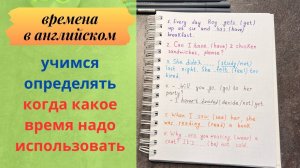 времена
в английском
учимся
определять
когда какое
время надо
использовать
Every day Roy gets (get)
up at six and has (have)
breakfast.
2 Can I have (have) 2 chicken
sandwiches, please?
3 She didn't (study/not)
last night. She felt (feel) too
tired.
you (go) to her
party?
I haven't decided (decide/not) yet.
When I saw (see) her, she
was reading (read) a book
Why are you wearing (wear) a
coat? It (be) not cold.